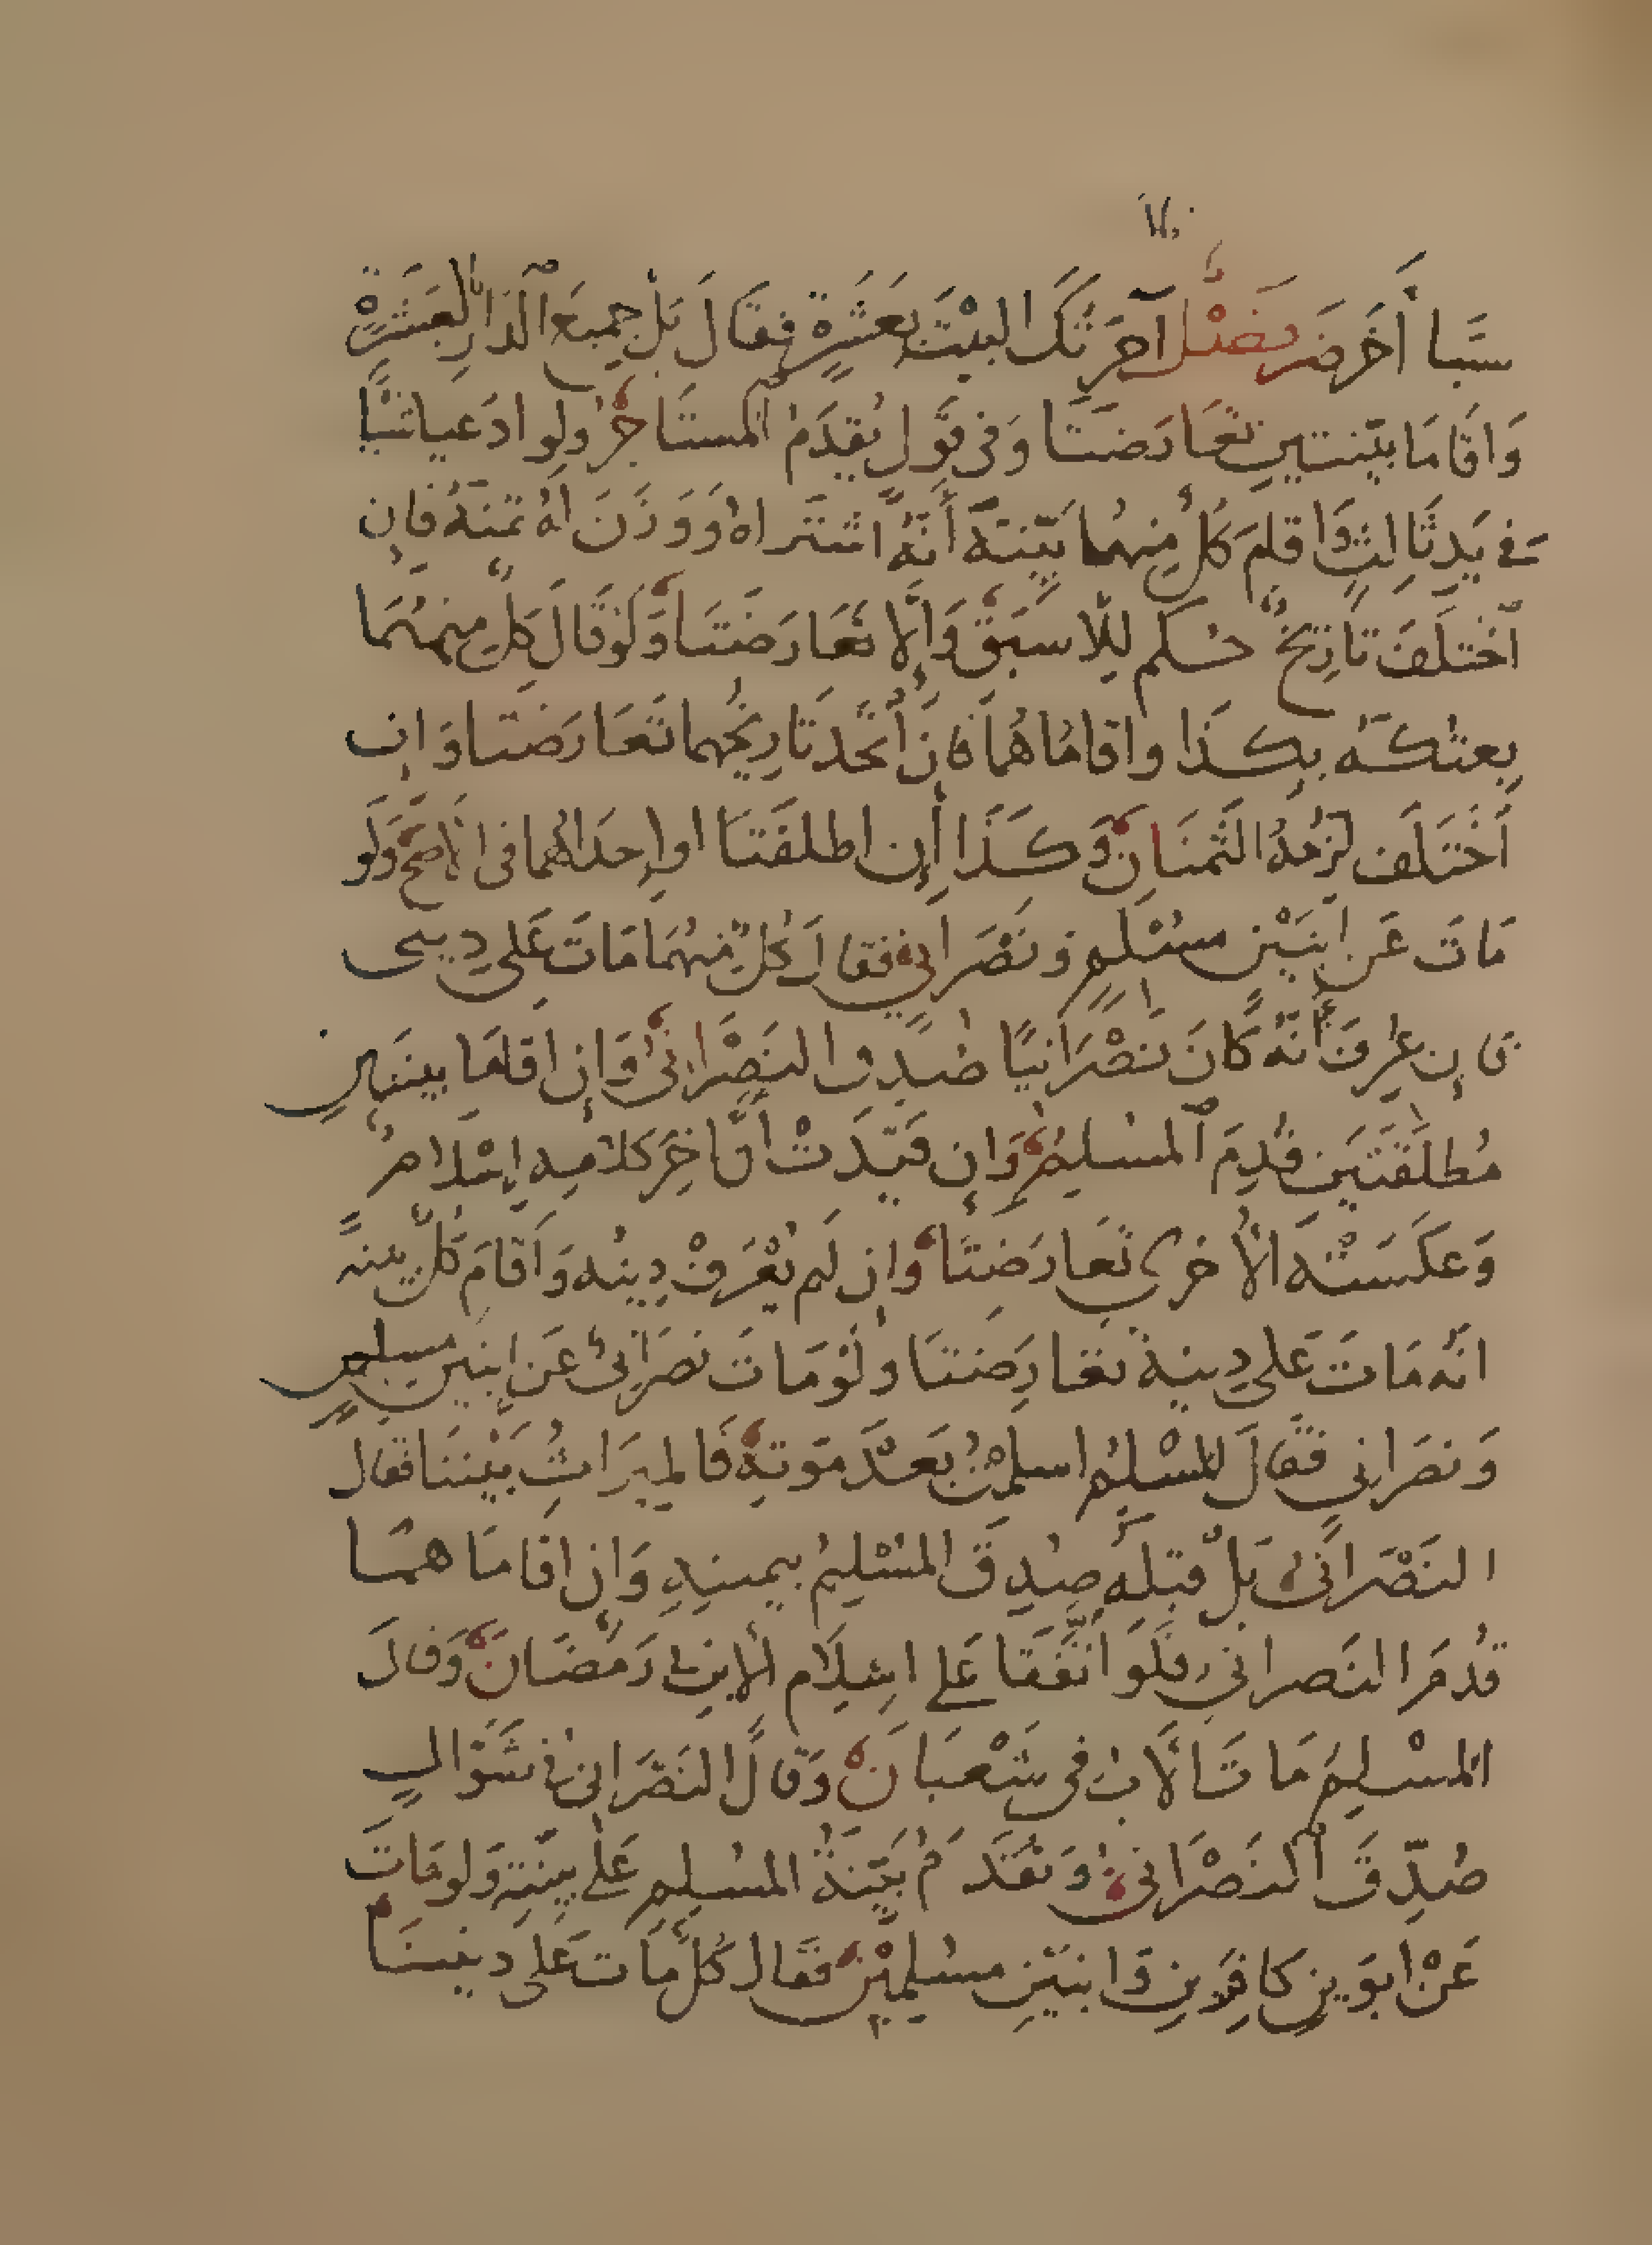 سببا أخر ضر فصل آجرتك البيت بعشرة فقال بل جميع الدار العشرة
وأقاما بينتين تعارضتا وفي قول يقدم المستأجر ولو ادعيا شيئا
في يد ثالث وأقام كل منهما بينة أنه اشتراه ووزن له ثمنه فإن
اختلف تاريخ حكم للأسبق وإلا تعارضتا ولو قال كل منهما
بعتكه بكذا وأقاماهما فإن اتحد تاريخهما تعارضتا وإن
اختلف لزمه الثمنان وكذا إن أطلقتا أو إحداهما في الأصح ولو
مات عن ابنين مسلم ونصراني فقال كل منهما مات على ديني
فإن عرف أنه كان نصرانيا صدق النصراني وإن أقاما بينتين
مطلقتين قدم المسلم وإن قيدت أن آخر كلامه إسلام
وعكسته الأخرى تعارضتا وإن لم يعرف دينه وأقام كل بينة
أنه مات على دينه تعارضتا ولو مات نصراني عن ابنين مسلم
ونصراني فقال المسلم أسلمت بعد موته فالميراث بيننا فقال
النصراني بل قبله صدق المسلم بيمينه وإن أقاماهما
قدم النصراني فلو اتفقا على إسلام الابن في رمضان وقال
المسلم مات الأب في شعبان وقال النصراني في شوال
صدق النصراني وتقدم بينة المسلم على بينته ولو مات
عن أبوين كافرين وابنين مسلمين فقال كل مات على ديننا